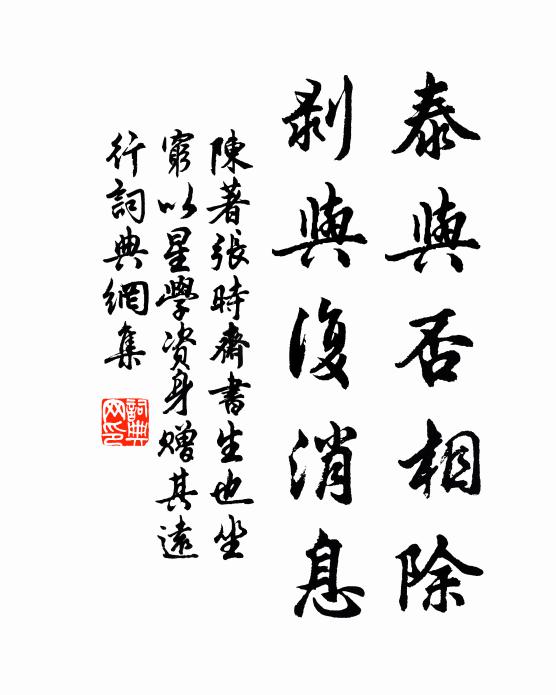 泰與否相除
剥與復消息
陳著張時齋書生也坐
窮以星學資身贈其遠
行詞典網集
詞典
网印